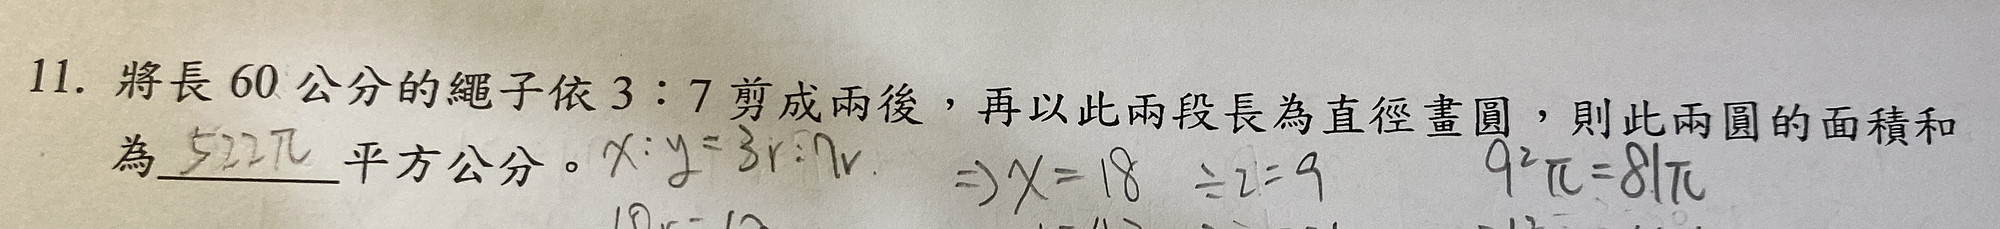 11. 將長 60 公分的繩子依 3：7 剪成兩後，再以此兩段長為直徑畫圓，則此兩圓的面積和
為 522π 平方公分。x:y=3r:7r. ⇒x=18 ÷2=9 9²π=81π